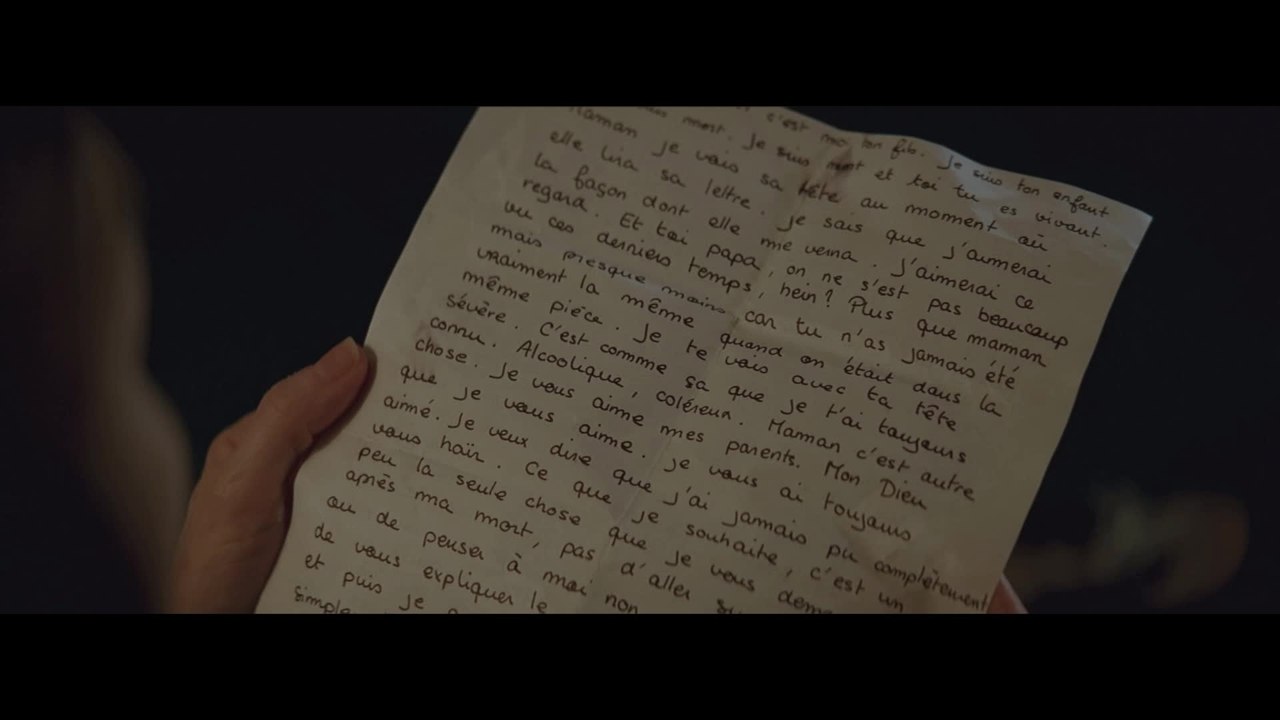 c'est moi ton fils. Je suis ton enfant
mort. Je suis mort et toi tu es vivant.
Maman je vois sa tête au moment où
elle lira sa lettre. Je sais que j'aimerai
la façon dont elle me verra. J'aimerai ce
regard. Et toi papa, on ne s'est pas beaucoup
vu ces derniers temps, hein ? Plus que maman
mais presque moins, car tu n'as jamais été
vraiment la même quand on était dans la
même pièce. Je te vois avec ta tête
sévère. C'est comme sa que je t'ai toujours
connu. Alcoolique, coléreux. Maman c'est autre
chose. Je vous aime mes parents. Mon Dieu
que je vous aime. Je vous ai toujours
aimé. Je veux dire que j'ai jamais pu complètement
vous haïr. Ce que je souhaite, c'est un
peu la seule chose que je vous dema
après ma mort, pas d'aller su
ou de penser à moi non
de vous expliquer le
et puis je
simple